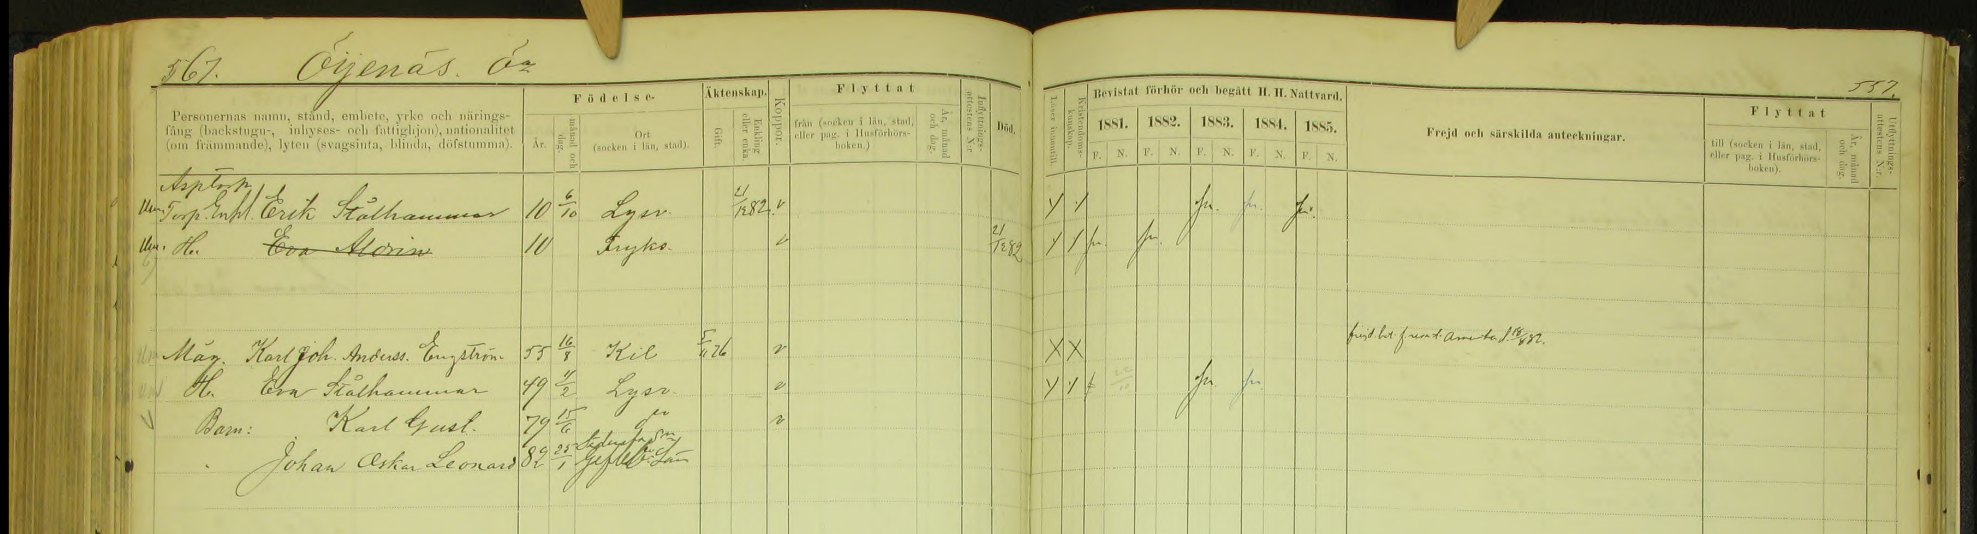 567. Öijenäs. Öa
557.
Personernas namn, stånd, embete, yrke och närings-
fång (backstugu-, inhyses- och fattighjon), nationalitet
(om främmande), lyten (svagsinta, blinda, döfstumma).
Födelse-
År.
månad och dag.
Ort
(socken i län, stad).
Äktenskap.
Gift.
Enkling eller enka.
Koppor.
Flyttat
från (socken i län, stad,
eller pag. i Husförhörs-
boken.)
År, månad och dag.
Inflyttnings-attestens N:r
Död.
Läser innantill.
Kristendoms-kunskap.
Bevistat förhör och begått H. H. Nattvard.
1881. 1882. 1883. 1884. 1885.
F. N. F. N. F. N. F. N. F. N.
Frejd och särskilda anteckningar.
Flyttat
till (socken i län, stad,
eller pag. i Husförhörs-
boken).
År, månad och dag.
Utflyttnings-attestens N:r.
Asptorp
Torp. Enkl. Erik Stålhammar 10 6/10 Lysv. 21/12 82 v
H. Eva Aldrin 10 Fryks. v 21/12 82
Måg. Karl Joh. Anderss. Engström 55 16/8 Kil 5/11 76 v X X
H. Eva Stålhammar 49 4/2 Lysv. v
Barn: Karl Gust. 79 15/6 v
Johan Oskar Leonard 82 25/1 Gefleb. Län